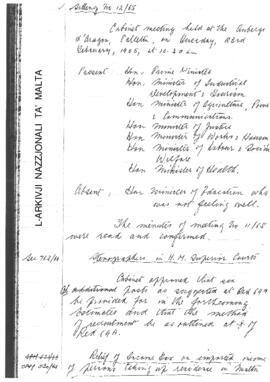 Meeting No 12/65
Cabinet meeting held at the Auberge
d'Aragon, Valletta, on Tuesday, 23rd
February, 1965, at
Present : Hon. Prime Minister
Hon. Minister of Industrial
Development & Tourism
Hon Minister of Agriculture, Power
& Communications.
Hon Minister of Justice
Hon Minister of Works & Housing
Hon Minister of Labour & Social
Welfare
Hon Minister of Health.
Absent : Hon Minister of Education who
was not feeling well.
The minutes of meeting No 11/65
were read and confirmed.
Stenographers in H.M. Superior Courts
Cabinet approved that
additional posts as suggested at Red 69A
be provided for in the forthcoming
Estimates and that the method
of recruitment be as outlined at
Red 69A.
Relief of Income Tax on imported income
of persons taking up residence in Malta
L-ARKIVJI NAZZJONALI TA MALTA